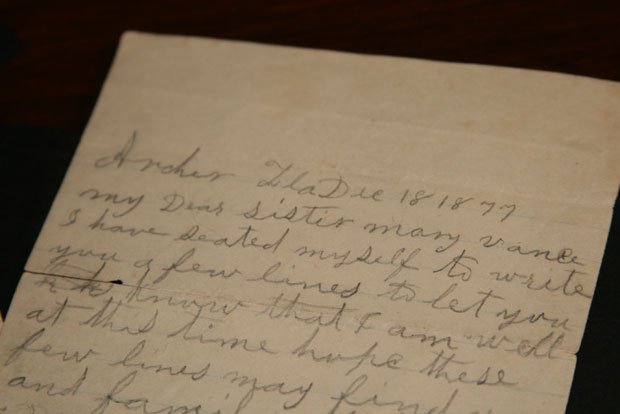 Archer Fla Dec 18 1877
my Dear sister mary vance
I have seated myself to write
you a few lines to let you
know that I am well
at this time hope these
few lines may find
and famil